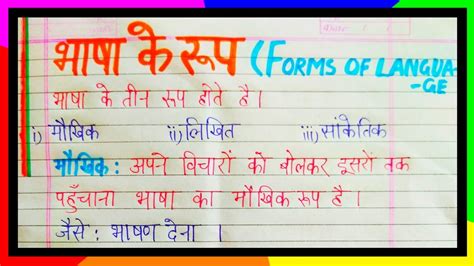 भाषा के रूप (FORMS OF LANGUA-
-GE
भाषा के तीन रूप होते है।
i) मौखिक ii) लिखित iii) सांकेतिक
मौखिक : अपने विचारों को बोलकर दूसरों तक
पहुँचाना भाषा का मौखिक रूप है।
जैसे : भाषण देना ।